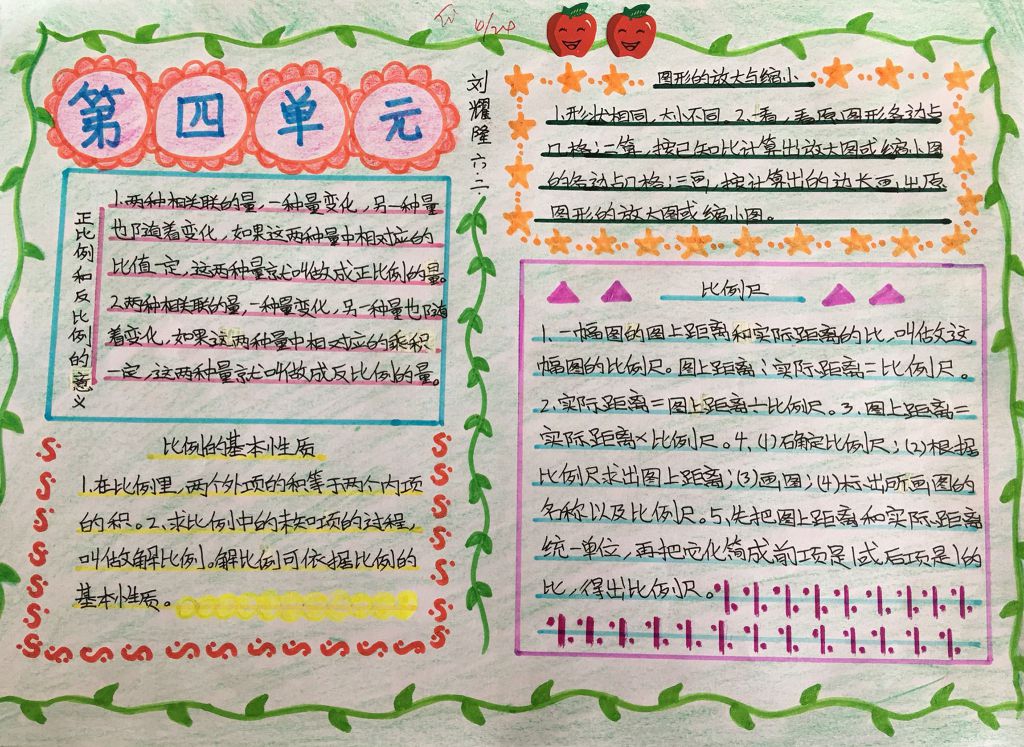 4/24
第四单元
刘耀隆 六.二.
正比例和反比例的意义
1.两种相关联的量,一种量变化,另一种量
也随着变化,如果这两种量中相对应的
比值一定,这两种量就叫做成正比例的量。
2.两种相关联的量,一种量变化,另一种量也随
着变化,如果这两种量中相对应的乘积
一定,这两种量就叫做成反比例的量。
比例的基本性质
1.在比例里,两个外项的和等于两个内项
的积。2.求比例中的未知项的过程,
叫做解比例。解比例可依据比例的
基本性质。
图形的放大与缩小
1.形状相同,大小不同。2.一看,看原图形各边占
几格;二算,按已知比计算出放大图或缩小图
的各边占几格;三画,按计算出的边长画出原
图形的放大图或缩小图。
比例尺
1.一幅图的图上距离和实际距离的比,叫做这
幅图的比例尺。图上距离:实际距离=比例尺。
2.实际距离=图上距离÷比例尺。3.图上距离=
实际距离×比例尺。4.(1)确定比例尺;(2)根据
比例尺求出图上距离;(3)画图;(4)标出所画图的
名称以及比例尺。5.先把图上距离和实际距离
统一单位,再把它化简成前项是1或后项是1的
比,得出比例尺。